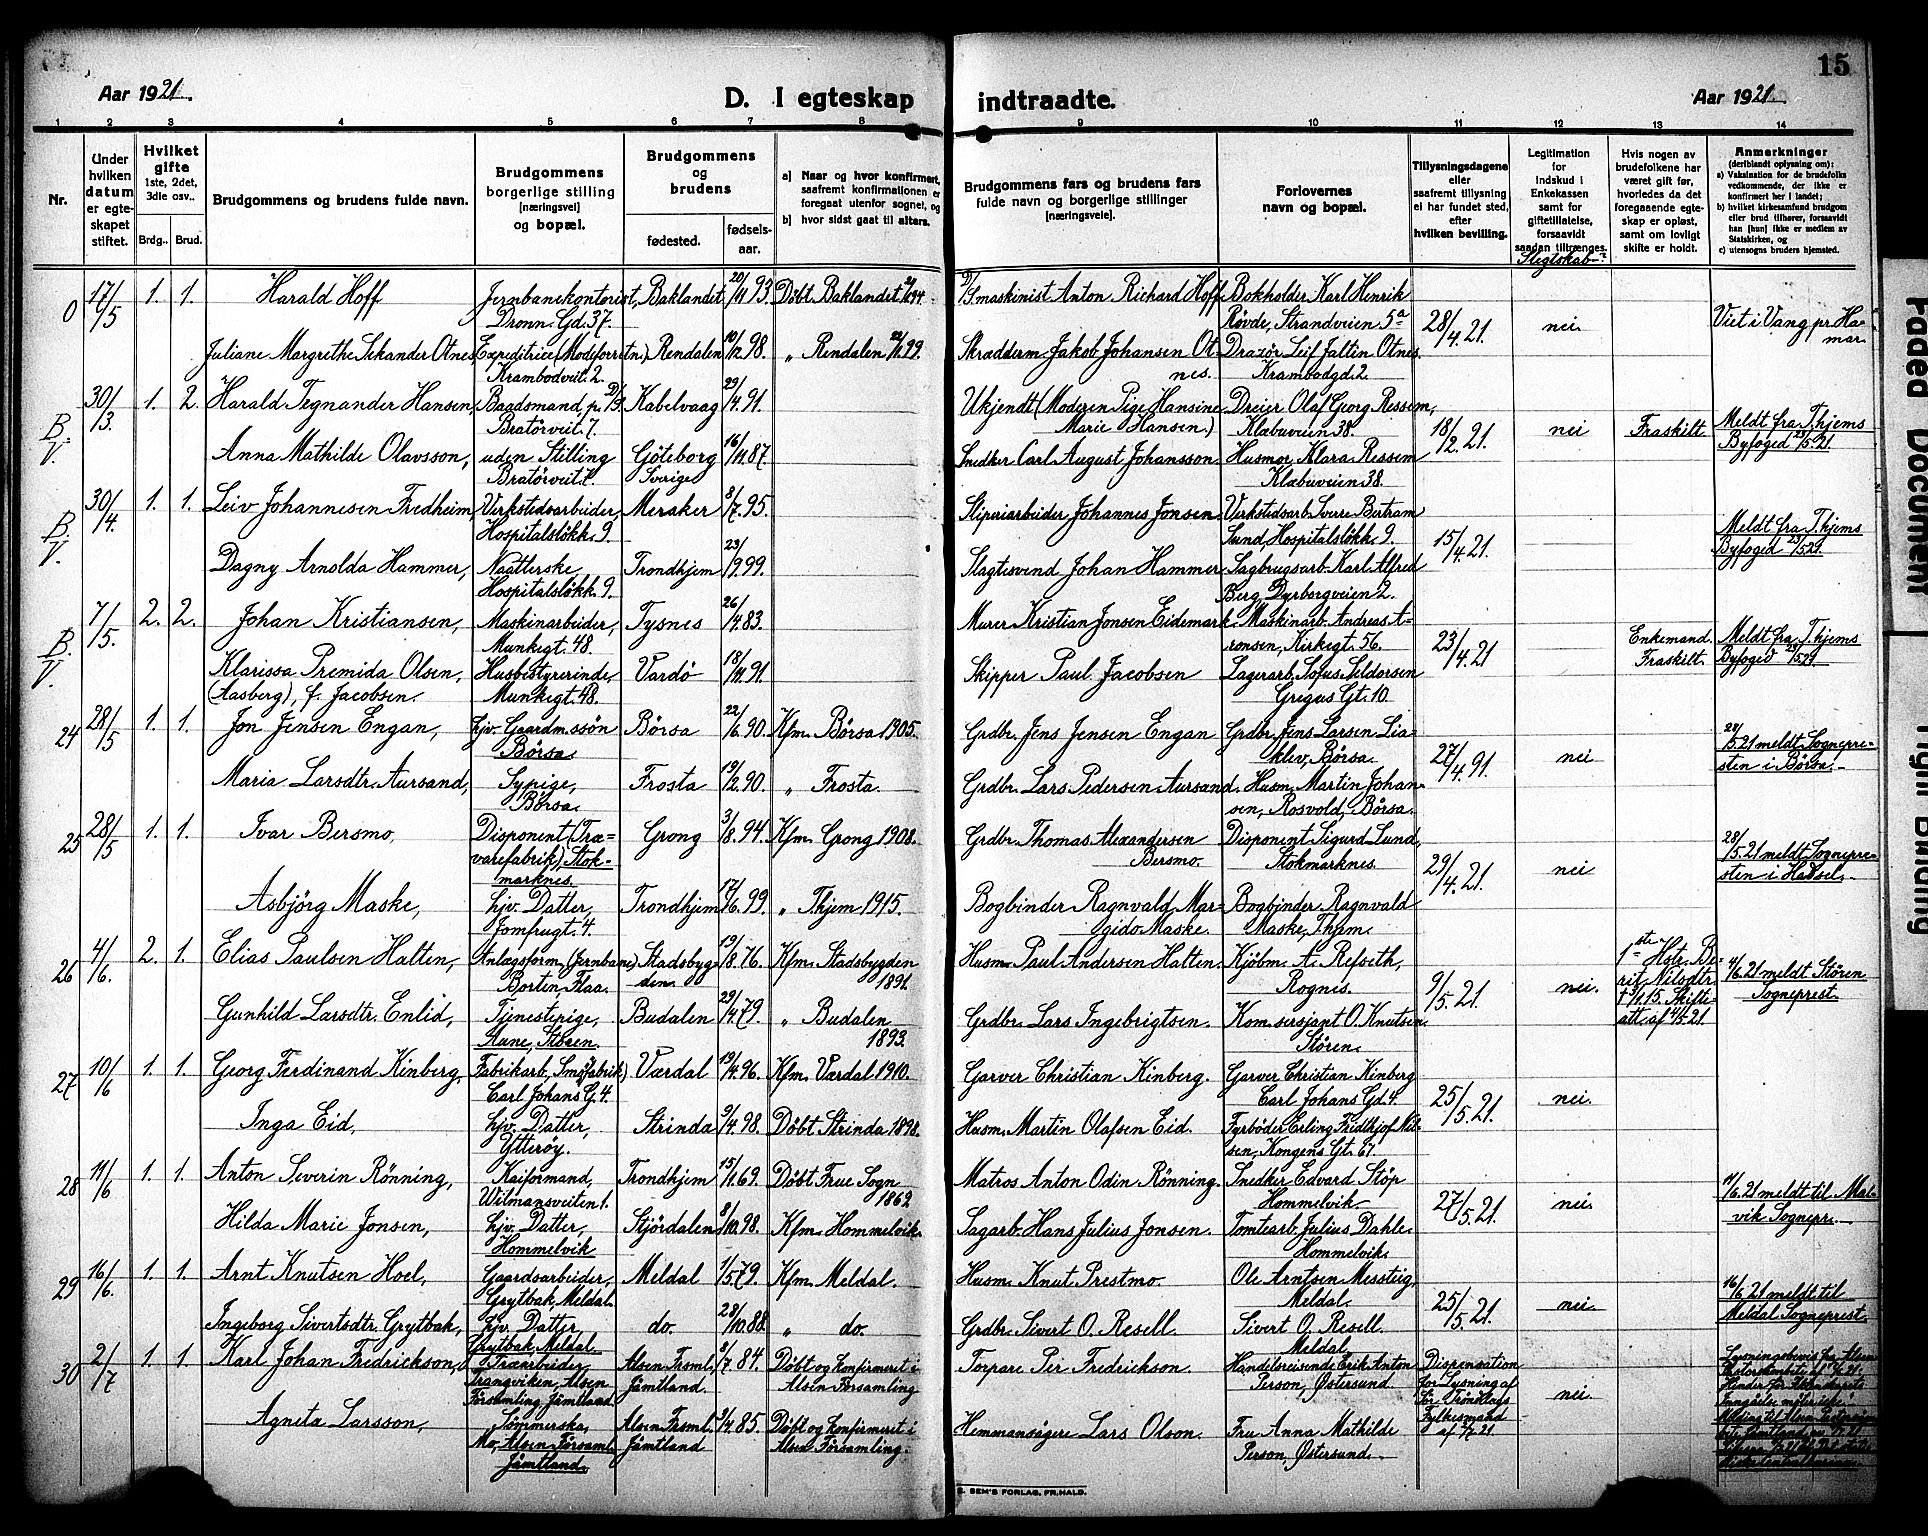 Aar 1921.
D. I egteskap
indtraadte.
Aar 1921.
15
1 2 3 4 5 6 7 8 9 10 11 12 13 14
Nr.
Under hvilken datum er egteskapet stiftet.
Hvilket gifte
1ste, 2det, 3dle osv..
Brdg.. Brud.
Brudgommens og brudens fulde navn.
Brudgommens borgerlige stilling [næringsvei] og bopæl.
Brudgommens og brudens
fødested.
fødselsaar.
a) Naar og hvor konfirmert, saafremt konfirmationen er foregaat utenfor sognet, og
b) hvor sidst gaat til alters.
Brudgommens fars og brudens fars fulde navn og borgerlige stillinger [næringsveie].
Forlovernes navn og bopæl.
Tillysningsdagene eller saafremt tillysning ei har fundet sted, efter hvilken bevilling.
Legitimation for Indskud i Enkekassen samt for giftetillatelse, forsaavidt saadan tiltrænges.
Slegtskab
Hvis nogen av brudefolkene har været gift før, hvorledes da det foregaaende egteskap er opløst, samt om lovligt skifte er holdt.
Anmerkninger
(deriblandt oplysning om):
a) Vaksination for de brudefolks vedkommende, der ikke er konfirmert her i landet;
b) hvilket kirkesamfund brudgom eller brud tilhører, forsaavidt han [hun] ikke er medlem av Statskirken, og
c) utensogns bruders hjemsted.
O 17/5 1. 1. Harald Hoff Jernbanekontorist, Baklandet 20/11 93. Døbt Baklandet D/S maskinist Anton Richard Hoff Bokholder Karl Henrik
Dronn. Gd. 37. Røvde, Strandveien 5a 28/4.21. nei Viet i Vang pr. Hamar
Juliane Margrethe Sekander Otnes, Expeditrice (Modeforretn.) Rendalen 10/12 98. " Rendalen Skrædderm. Jakob Johansen Otnes. Drazør Leif Jaltin Otnes.
Krambodveit. 2. Krambodgd. 2
B.V. 30/3. 1. 2. Harald Tegnander Hansen, Baadsmand, p. D/S. Kabelvaag 29/4.91. Ukjendt (Moderen Pige Hansine Dreier Olaf Georg Ressem,
Bratørveit. 7. Marie Hansen.) Klæbuveien 38. 18/2.21. nei Fraskilt. Meldt fra T.hjems
Anna Mathilde Olavsson, uden Stilling Göteborg 16/11 87. Snedker Carl August Johansson Husmor Klara Ressem Byfoged 23/5.21.
Bratørveit. 7. Sverige Klæbuveien 38.
B.V. 30/4. 1. 1. Leiv Johannesen Fredheim, Verkstedsarbeider, Meraker 8/7.95. Sliperiarbeider Johannes Jonsen Verkstedsarb. Sverre Bertram
Hospitalsløkk. 9. Lund, Hospitalsløkk. 9. 15/4.21. Meldt fra T.hjems
Dagny Arnolda Hammer, Naatterske Trondhjem 23/9.99. Slagtesvend Johan Hammer Sagbrugsarb. Karl Alfred Byfoged 23/5.21.
Hospitalsløkk. 9. Berg, Dyrborgveien 2.
B.V. 7/5. 2. 2. Johan Kristiansen, Maskinarbeider, Tysnes 26/4.83. Murer Kristian Jonsen Eidemark. Maskinarb. Andreas Aronsen, Kirkegt. 56.
Munkegt. 48. 23/4.21 Enkemand. Meldt fra T.hjems
Klarissa Premida Olsen, Husbestyrerinde, Vardö 18/11 91. Skipper Paul Jacobsen Lagerarb. Sofus Seldorsen Fraskilt. Byfoged 23/5.21.
(Aasberg), f. Jacobsen. Munkegt. 48. Gregus Gt. 10.
24 28/5 1. 1. Jon Jensen Engan, hjv. Gaardm.ssön Börsa 22/6.90. Kfm. Børsa 1905. Grdbr. Jens Jensen Engan Grdbr. Jens Larsen Liaklev, Börsa.
Börsa. 27/4.91. nei 28/5.21 meldt Sognepresten i Børsa.
Maria Larsdtr. Aursand, Sypige, Frosta 19/2.90. " Frosta. Grdbr. Lars Pedersen Aursand. Husm. Martin Johansen, Rosvold, Börsa.
Börsa.
25 28/5 1. 1. Ivar Bersmo, Disponent (Trævarefabrik), Stokmarknes. Grong 3/8.94. Kfm. Grong 1908. Grdbr. Thomas Alexandersen Bersmo. Disponent Sigurd Lund, Stokmarknes.
29/4.21. nei 28/5.21 meldt Sognepresten i Hadsel.
Asbjörg Maske, hjv. Datter, Trondhjem 17/6.99. " T.hjem 1915. Bogbinder Ragnvald Margido Maske. Bogbinder Ragnvald Maske, T.hjem.
Jomfrugt. 4.
26 4/6. 2. 1. Elias Paulsen Halten, Anlægsform. (Jernbane) Stadsbygden 19/8.76. Kfm. Stadsbygden 1891. Husm. Paul Andersen Halten. Kjöbm. A. Refseth, Rognes.
Borten Flaa. 9/5.21. nei. 1ste Hstr. Berit Nilsdtr. 4/6.21 meldt Støren Sogneprest.
Gunhild Larsdtr. Enlid, Tjenestepige, Budalen 29/4.79. " Budalen 1893. Grdbr. Lars Ingebrigtsen. Kom.sersjant O. Knutsen Støren.
Aune, Støren. Skifteatt. af 4/5.21.
27 10/6 1. 1. Georg Ferdinand Kinberg, Fabrikarb. Værdal 19/4.96. Kfm. Værdal 1910. Garver Christian Kinberg. Garver Christian Kinberg
Carl Johans G. 4. Carl Johans Gd. 4. 25/5.21. nei.
Inga Eid, hjv. Datter, Strinda 9/4.98. Döbt Strinda 1898. Husm. Martin Olafsen Eid. Fyrböder Erling Fridthjof Nilsen, Kongens Gt. 61.
Ytterøy.
28 11/6 1. 1. Anton Severin Rönning, Kaiformand, Trondhjem 15/1.69. Döbt Frue Sogn 1869 Matros Anton Odin Rönning. Snedker Edvard Stöp Hommelvik
Wilmansveiten 1. 27/5.21. nei. 11/6.21 meldt til Malvik Sognepr.
Hilda Marie Jonsen, hjv. Datter, Stjördalen 8/10.98. Kfm. Hommelvik. Sagarb. Hans Julius Jonsen. Tomtearb. Julius Dahle Hommelvik.
Hommelvik
29 16/6. 1. 1. Arnt Knutsen Hoel, Gaardsarbeider, Meldal 1/5.79. Kfm. Meldal. Husm. Knut Prestmo. Ole Arntsen Messteig, Meldal.
Grytbak, Meldal. 25/5.21. nei. 16/6.21 meldt til Meldal Sogneprest.
Ingeborg Sivertsdtr. Grytbak, hjv. Datter, do. 28/10.88. " do. Grdbr. Sivert O. Resell. Sivert O. Resell. Meldal
Grytbak, Meldal.
30 2/7 1. 1. Karl Johan Fredrickson, Træarbeider, Alsen Frsml. Jämtland. 8/7.84. Döbt og konfirmeret i Alsen Församling Torpare Per Fredrickson. Handelsreisende Erik Anton Person, Østersund
Trangviken, Alsen Församling Jämtland Dispensation for Lysning af Sör Tröndelags Fylkesmand af 1/7.21 nei.
Agneta Larsson, Sömmerska, Alsen Frsml. Jämtland 9/4.85. Döbt og Konfirmeret i Alsen Församling. Hemmansägere Lars Olson. Fru Anna Mathilde Person, Østersund.
Mo, Alsen Församl. Jämtland.
E. SEM'S FORLAG, FR.HALD.
Faded Document
Tight Binding